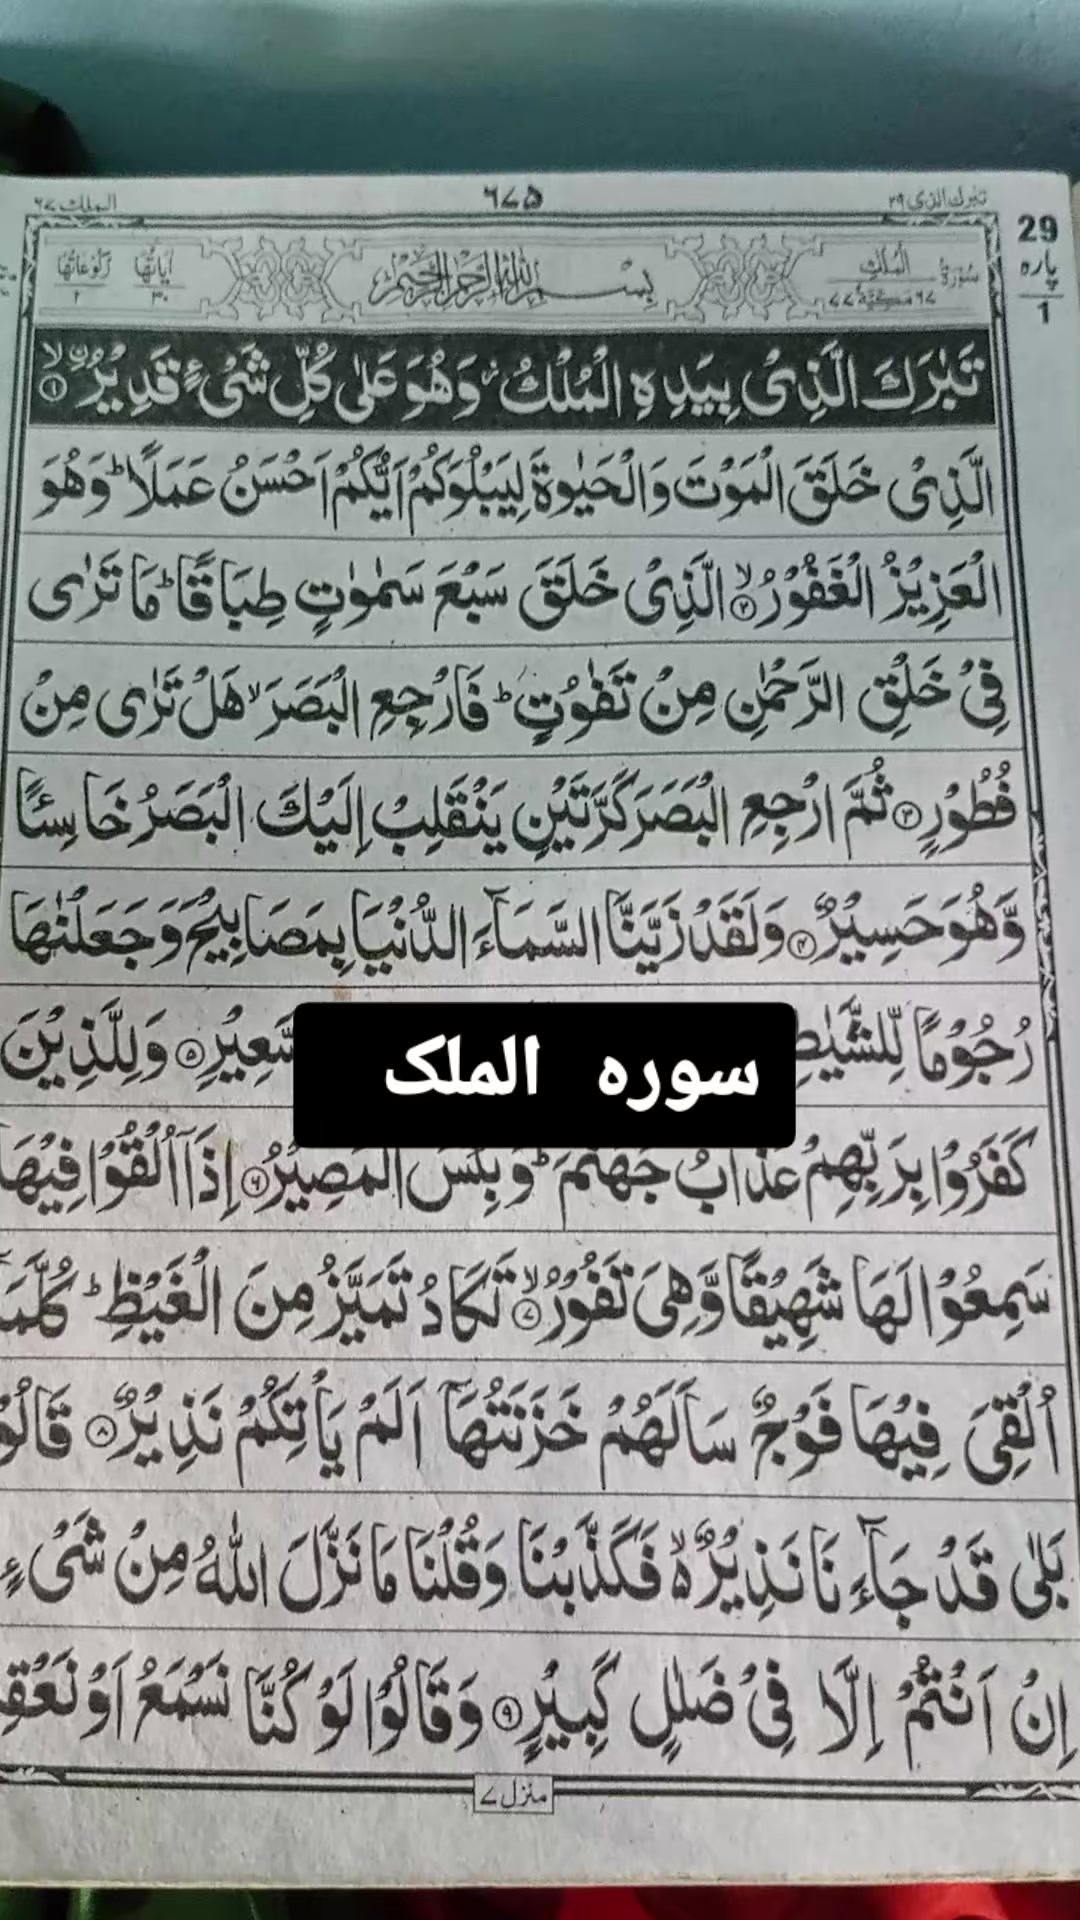 تبٰرك الذی ۲۹
۶۷۵
الملك ۶۷
29
پارہ
1
سُوْرَةُ الْمُلْكِ
۶۷ مَكِّيَّةٌ ۷۷
بِسْمِ اللهِ الرَّحْمٰنِ الرَّحِيْمِ
اٰيَاتُهَا ۳۰
رُكُوْعَاتُهَا ۲
تَبٰرَكَ الَّذِیْ بِیَدِهِ الْمُلْكُ ؗ وَهُوَ عَلٰی كُلِّ شَیْءٍ قَدِیْرُ ۙ۝۱
الَّذِیْ خَلَقَ الْمَوْتَ وَالْحَیٰوةَ لِیَبْلُوَكُمْ اَیُّكُمْ اَحْسَنُ عَمَلًا ؕ وَهُوَ
الْعَزِیْزُ الْغَفُوْرُ ۙ۝۲ الَّذِیْ خَلَقَ سَبْعَ سَمٰوٰتٍ طِبَاقًا ؕ مَا تَرٰی
فِیْ خَلْقِ الرَّحْمٰنِ مِنْ تَفٰوُتٍ ؕ فَارْجِعِ الْبَصَرَ ۙ هَلْ تَرٰی مِنْ
فُطُوْرٍ ۝۳ ثُمَّ ارْجِعِ الْبَصَرَ كَرَّتَیْنِ یَنْقَلِبْ اِلَیْكَ الْبَصَرُ خَاسِئًا
وَّهُوَ حَسِیْرٌ ۝۴ وَلَقَدْ زَیَّنَّا السَّمَآءَ الدُّنْیَا بِمَصَابِیْحَ وَجَعَلْنٰهَا
رُجُوْمًا لِّلشَّیٰطِ سَّعِیْرِ ۝۵ وَلِلَّذِیْنَ
سورہ الملک
كَفَرُوْا بِرَبِّهِمْ عَذَابُ جَهَنَّمَ ؕ وَبِئْسَ الْمَصِیْرُ ۝۶ اِذَاۤ اُلْقُوْا فِیْهَا
سَمِعُوْا لَهَا شَهِیْقًا وَّهِیَ تَفُوْرُ ۙ۝۷ تَكَادُ تَمَیَّزُ مِنَ الْغَیْظِ ؕ كُلَّمَا
اُلْقِیَ فِیْهَا فَوْجٌ سَاَلَهُمْ خَزَنَتُهَاۤ اَلَمْ یَاْتِكُمْ نَذِیْرٌ ۝۸ قَالُوْ
بَلٰی قَدْ جَآءَنَا نَذِیْرٌ ۙ۬ فَكَذَّبْنَا وَقُلْنَا مَا نَزَّلَ اللهُ مِنْ شَیْءٍ
اِنْ اَنْتُمْ اِلَّا فِیْ ضَلٰلٍ كَبِیْرٍ ۝۹ وَقَالُوْا لَوْ كُنَّا نَسْمَعُ اَوْ نَعْقِ
منزل ۷